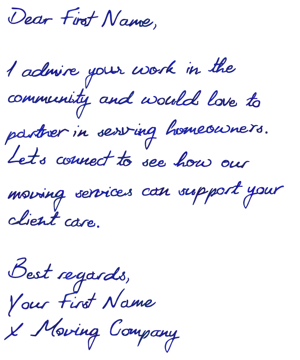 Dear First Name,
I admire your work in the
community and would love to
partner in serving homeowners.
Let's connect to see how our
moving services can support your
client care.
Best regards,
Your First Name
X Moving Company